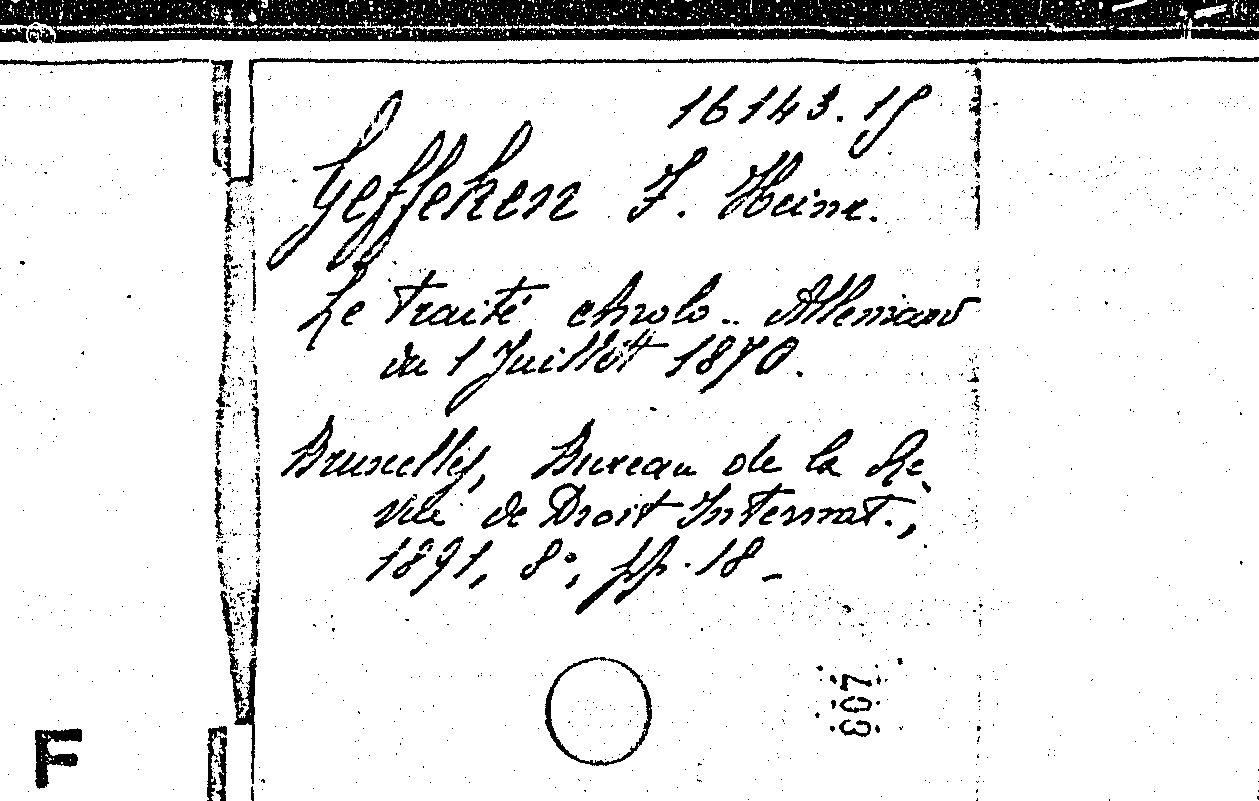 16143.15
Geffcken F. Heinr.
Le traité Anglo-Allemand
du 1 Juillet 1890.
Bruxelles, Bureau de la Re-
vue de Droit Internat.,
1891, 8°, pp. 18-
607
F